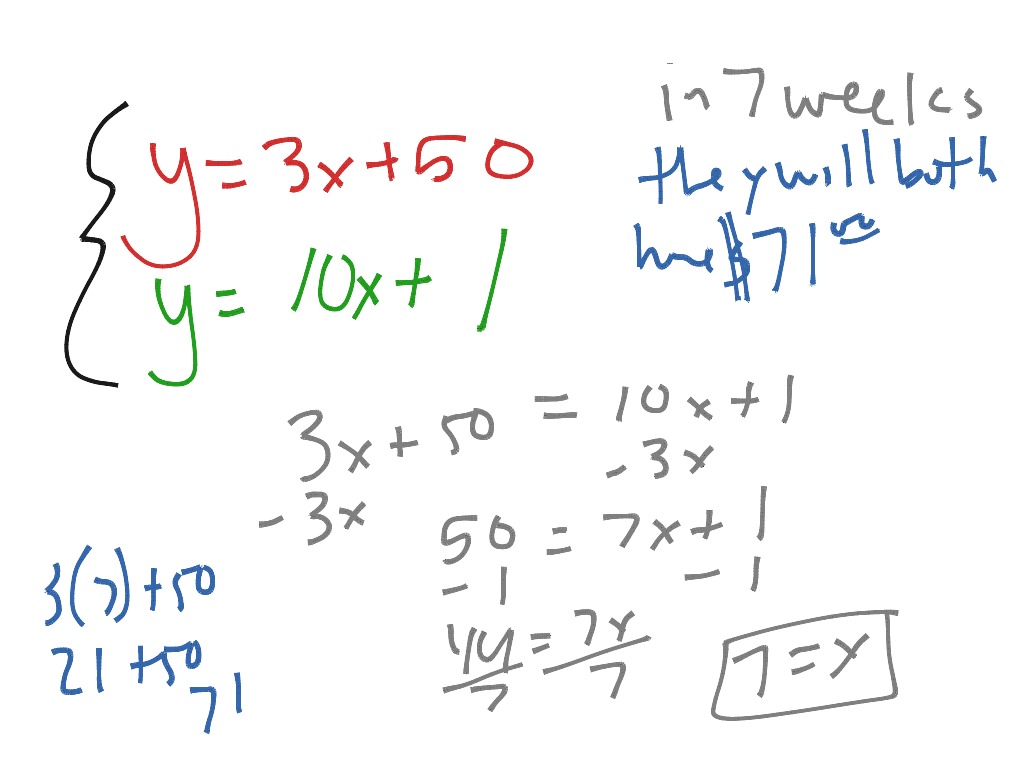 y = 3x + 50
y = 10x + 1
in 7 weeks
they will both
have $71⁰⁰
3x + 50 = 10x + 1
- 3x - 3x
50 = 7x + 1
- 1 - 1
49/7 = 7x/7
7 = x
3(7) + 50
21 + 50
71